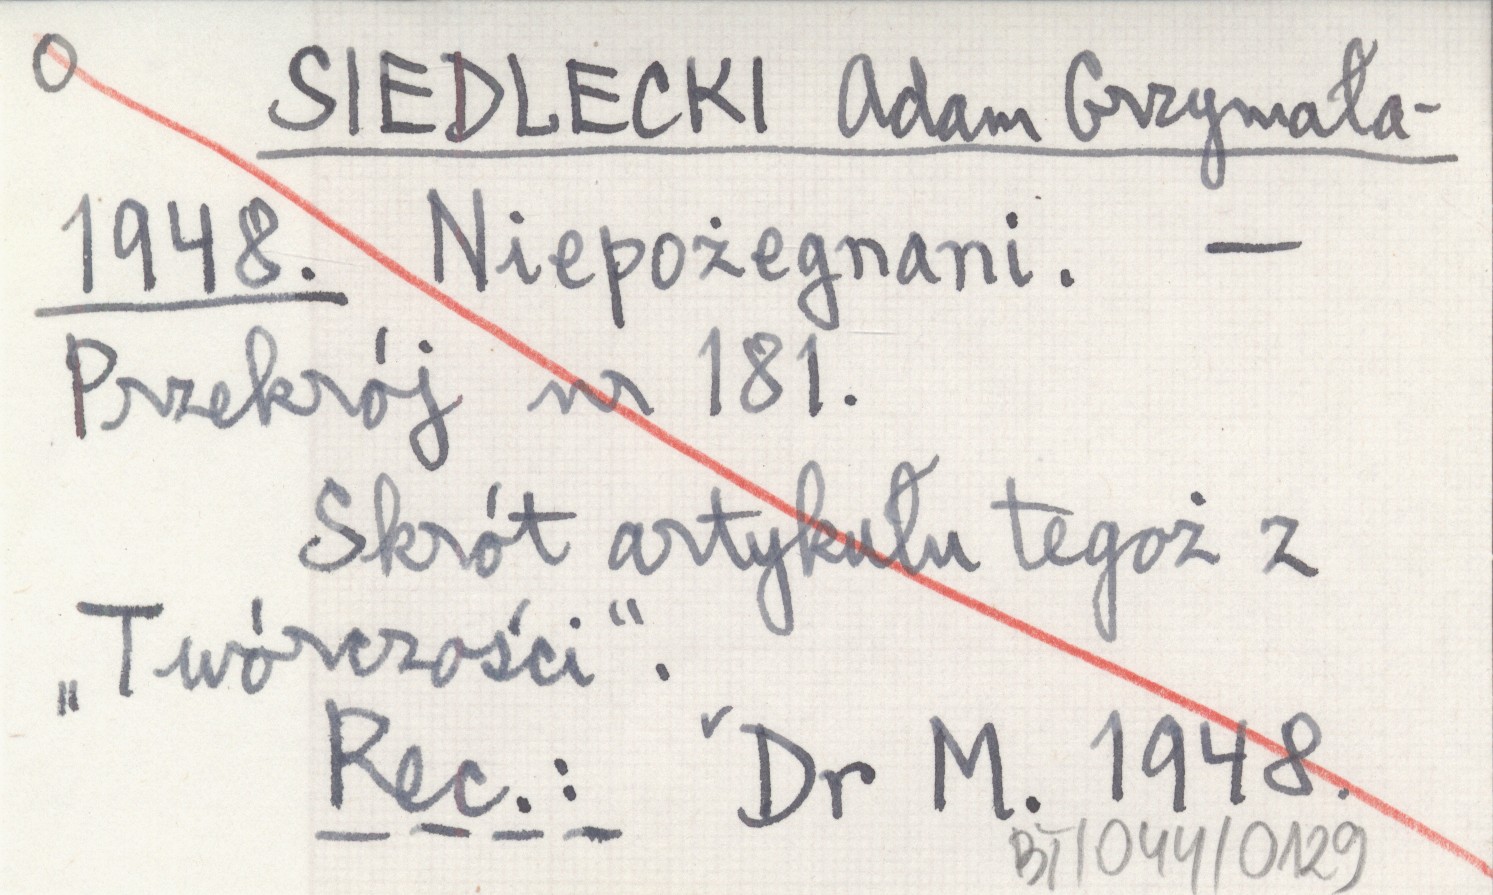 O SIEDLECKI Adam Grzymała-
1948. Niepożegnani. —
Przekrój nr 181.
Skrót artykułu tegoż z
„Twórczości“.
Rec.: ˇDr M. 1948.
BT/044/0129